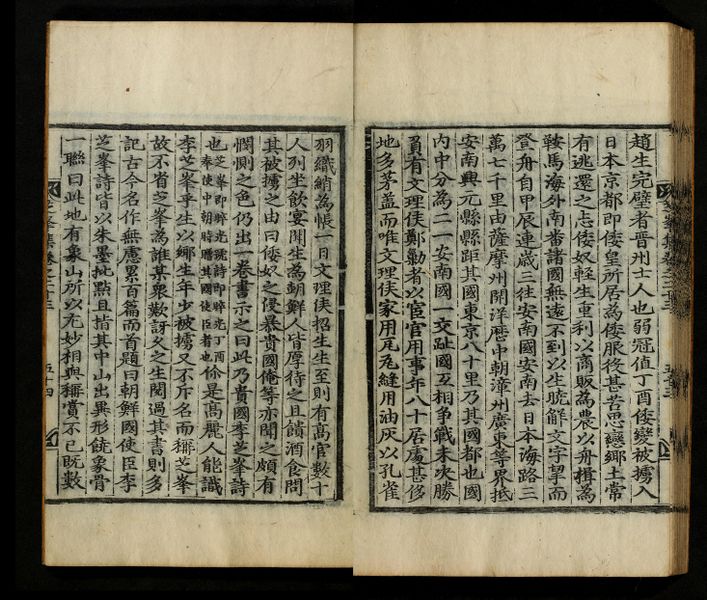 趙生完璧者晋州士人也弱冠值丁酉倭變被擄入
日本京都即倭皇所居為倭服役甚苦思戀鄉土常
有逃還之志倭奴輕生重利以商販為農以舟楫為
鞍馬海外南番諸國無遠不到以生曉解文字挈而
登舟自甲辰連歲三往安南國安南去日本海路三
萬七千里由薩摩州開洋歷中朝漳州廣東等界抵
安南興元縣縣距其國東京八十里乃其國都也國
內中分為二一安南國一交趾國互相爭戰未決勝
負有文理侯鄭勦者以宦官用事年八十居處甚侈
地多茅盖而唯文理侯家用瓦瓦縫用油灰以孔雀
羽織綃為帳一日文理侯招生生至則有高官數十
人列坐飲宴聞生為朝鮮人皆厚待之且饋酒食問
其被擄之由曰倭奴之侵暴貴國俺等亦聞之頗有
憫惻之色仍出一卷書示之曰此乃貴國李芝峯詩
也芝峯即睟光號詩即睟光丁酉奉使中朝時贈其國使臣者也你是高麗人能識
李芝峯乎生以鄉生年少被擄又不斥名而稱芝峯
故不省芝峯為誰某衆歎訝久之生閱過其書則多
記古今名作無慮累百篇而首題曰朝鮮國使臣李
芝峯詩皆以朱墨批點且指其中山出異形饒象骨
一聯曰此地有象山所以尤妙相與稱賞不已旣數
芝峯集卷之二十三
五十三
芝峯集卷之二十三
五十四